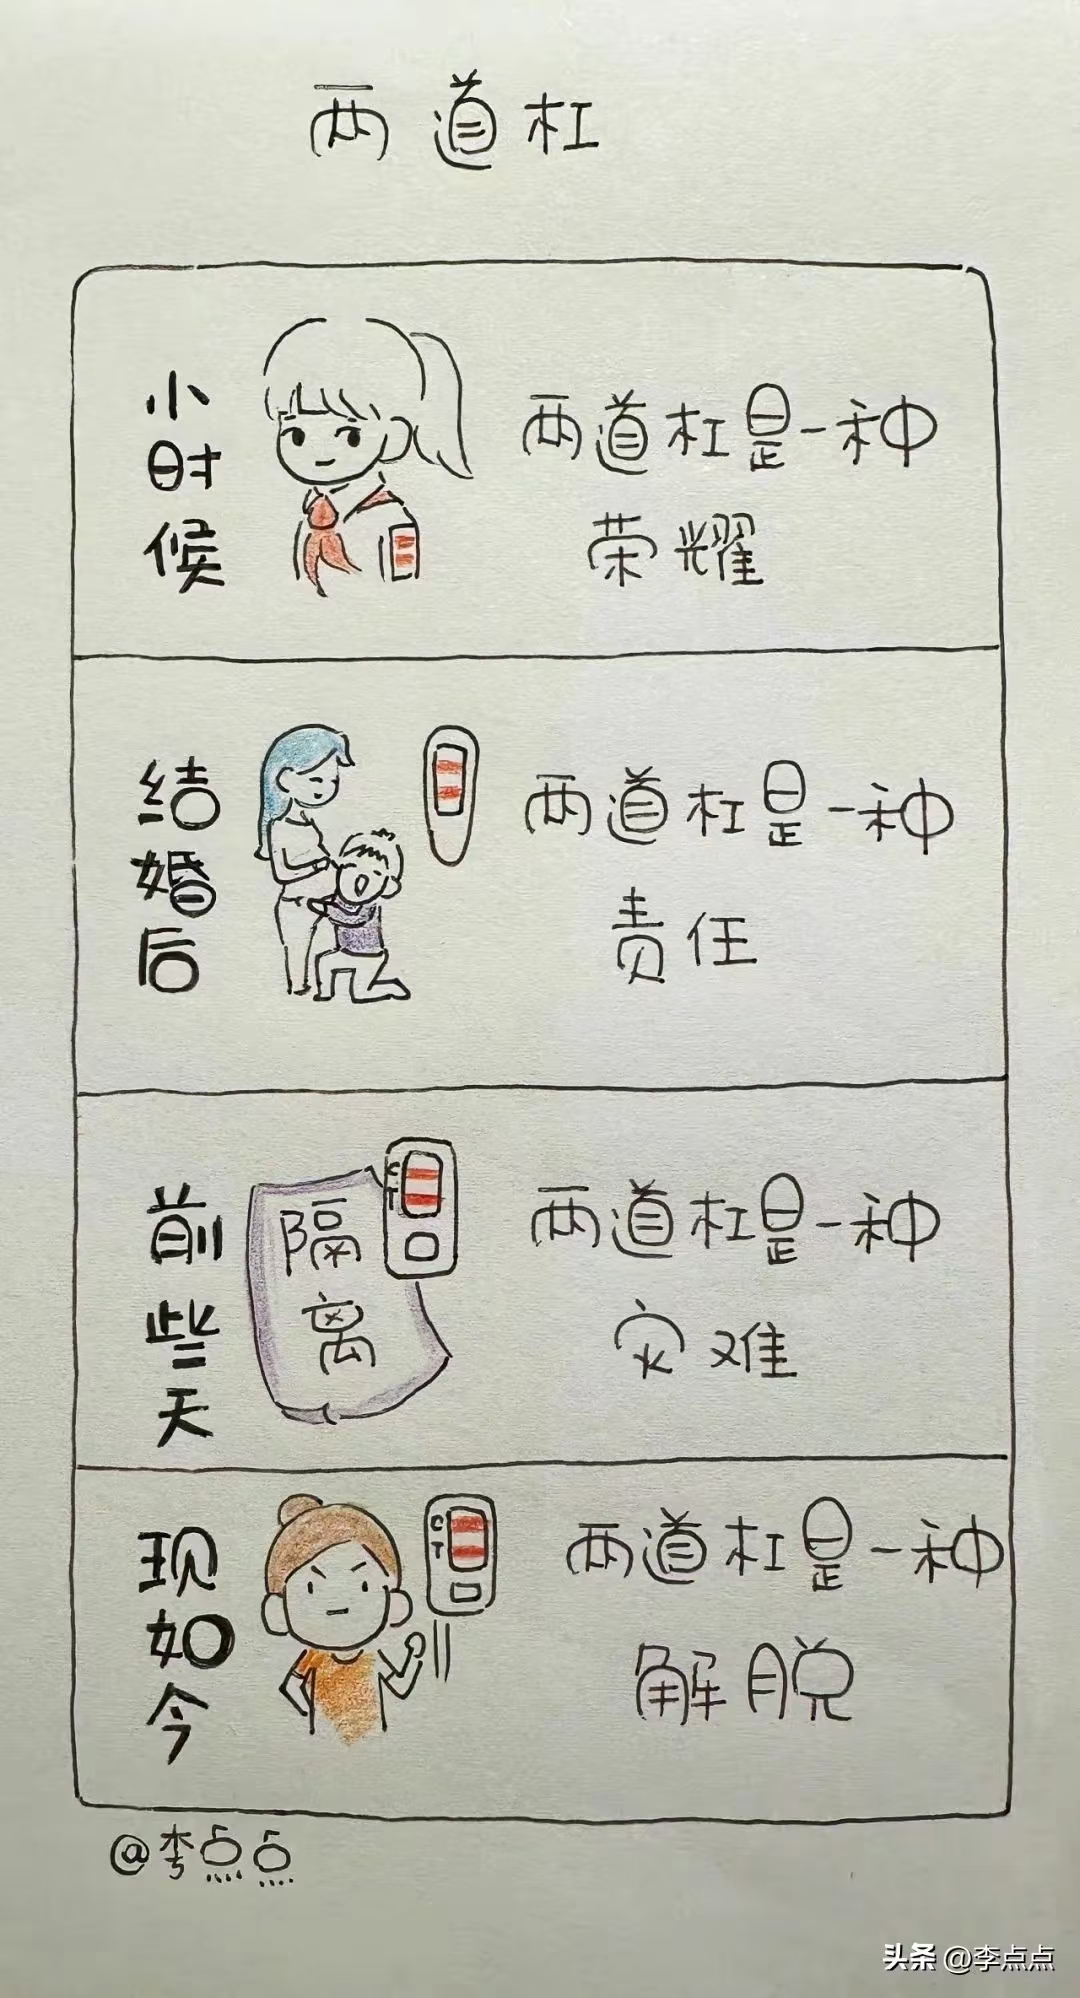 两道杠
小时候
两道杠是一种
荣耀
结婚后
两道杠是一种
责任
前些天
隔离
C
T
两道杠是一种
灾难
现如今
C
T
两道杠是一种
解脱
@李点点
头条 @李点点